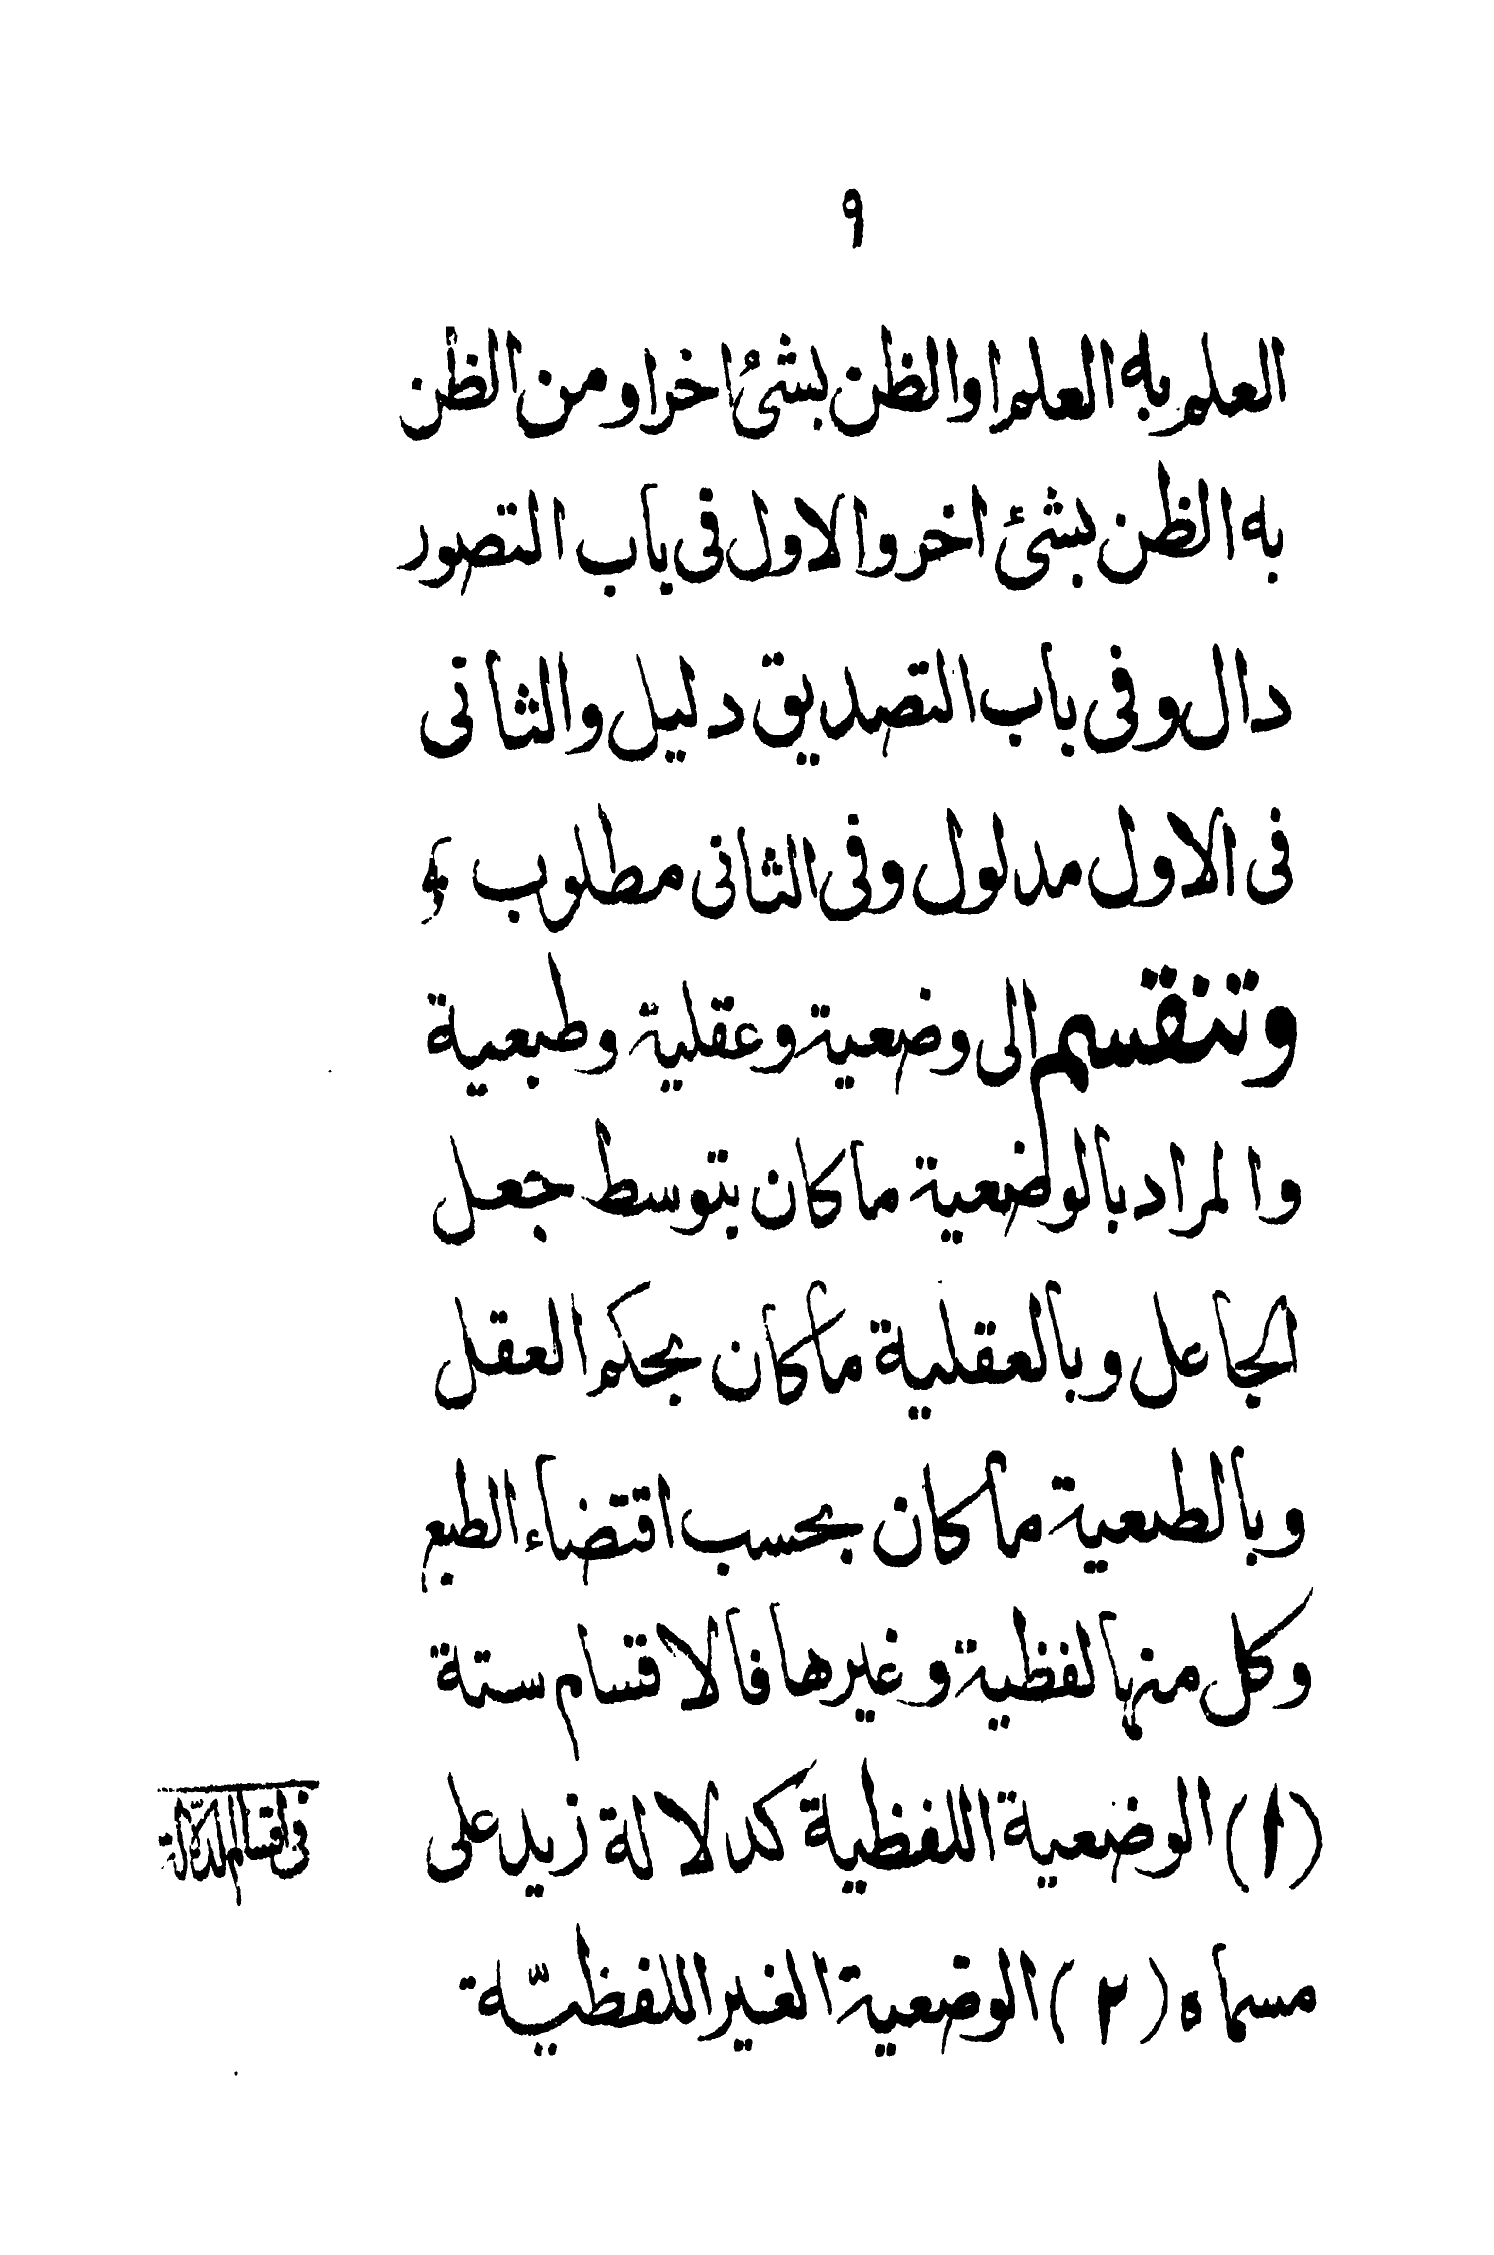 ٩
العلم به العلم او الظن بشئ اخر او من الظن
به الظن بشئ اخر والاول فى باب التصور
دال وفى باب التصديق دليل والثانى
فى الاول مدلول وفى الثانى مطلوب
وتنقسم الى وضعية وعقلية وطبعية
والمراد بالوضعية ما كان بتوسط جعل
الجاعل وبالعقلية ما كان بحكم العقل
وبالطبعية ما كان بحسب اقتضاء الطبع
وكل منها لفظية وغيرها فالاقسام ستة
(١) الوضعية اللفظية كدلالة زيد على
فى اقسام الدلالة
مسماه (٢) الوضعية الغير اللفظيّة